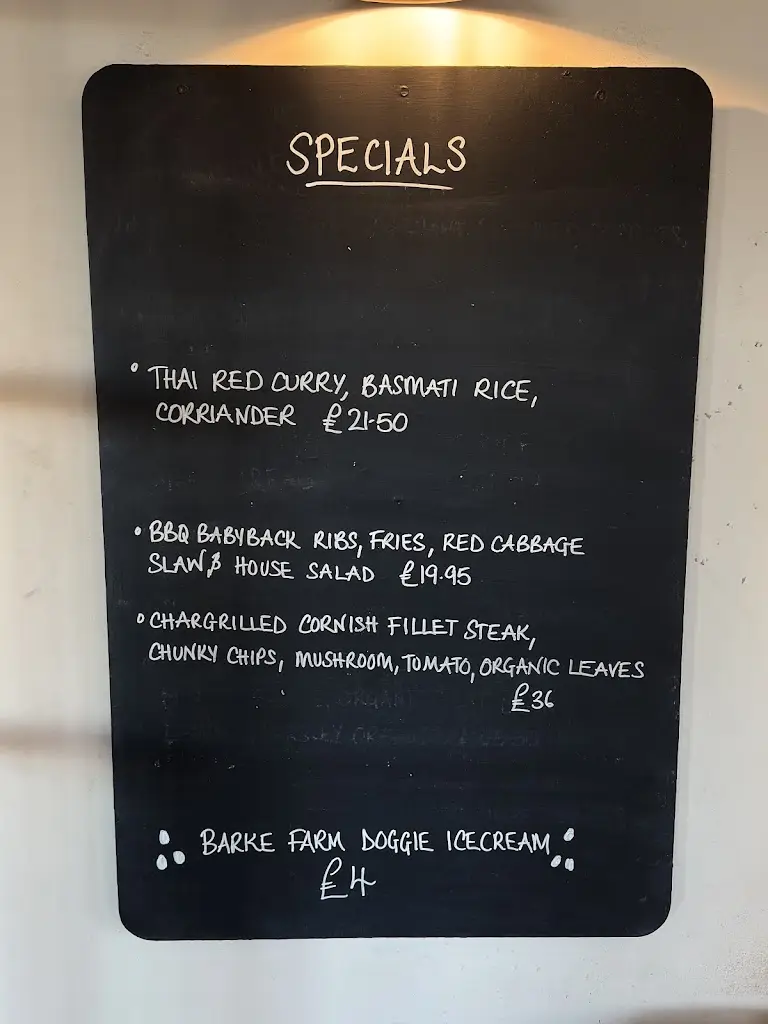 SPECIALS
• THAI RED CURRY, BASMATI RICE,
CORRIANDER £21·50
• BBQ BABYBACK RIBS, FRIES, RED CABBAGE
SLAW & HOUSE SALAD £19.95
• CHARGRILLED CORNISH FILLET STEAK,
CHUNKY CHIPS, MUSHROOM, TOMATO, ORGANIC LEAVES
£36
BARKE FARM DOGGIE ICECREAM
£4